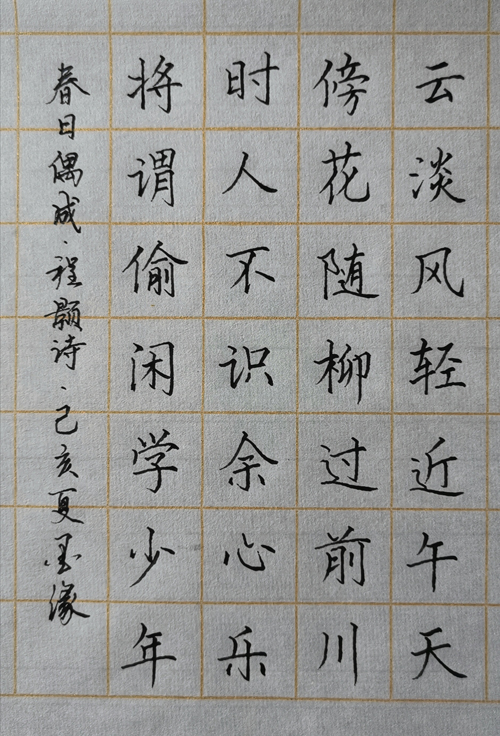 云淡风轻近午天
傍花随柳过前川
时人不识余心乐
将谓偷闲学少年
春日偶成·程颢诗·己亥夏墨缘